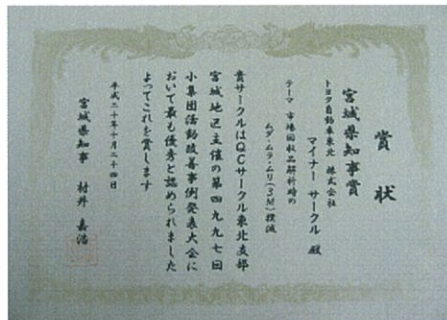 賞状
宮城県知事賞
トヨタ自動車東北 株式会社
マイナー サークル 殿
テーマ 市場回収品解析時の
ムダ・ムラ・ムリ(3M)撲滅
貴サークルはQCサークル東北支部
宮城地区主催の第四九九七回
小集団活動改善事例発表大会に
おいて最も優秀と認められました
よってこれを賞します
平成二十年十月二十四日
宮城県知事 村井 嘉浩